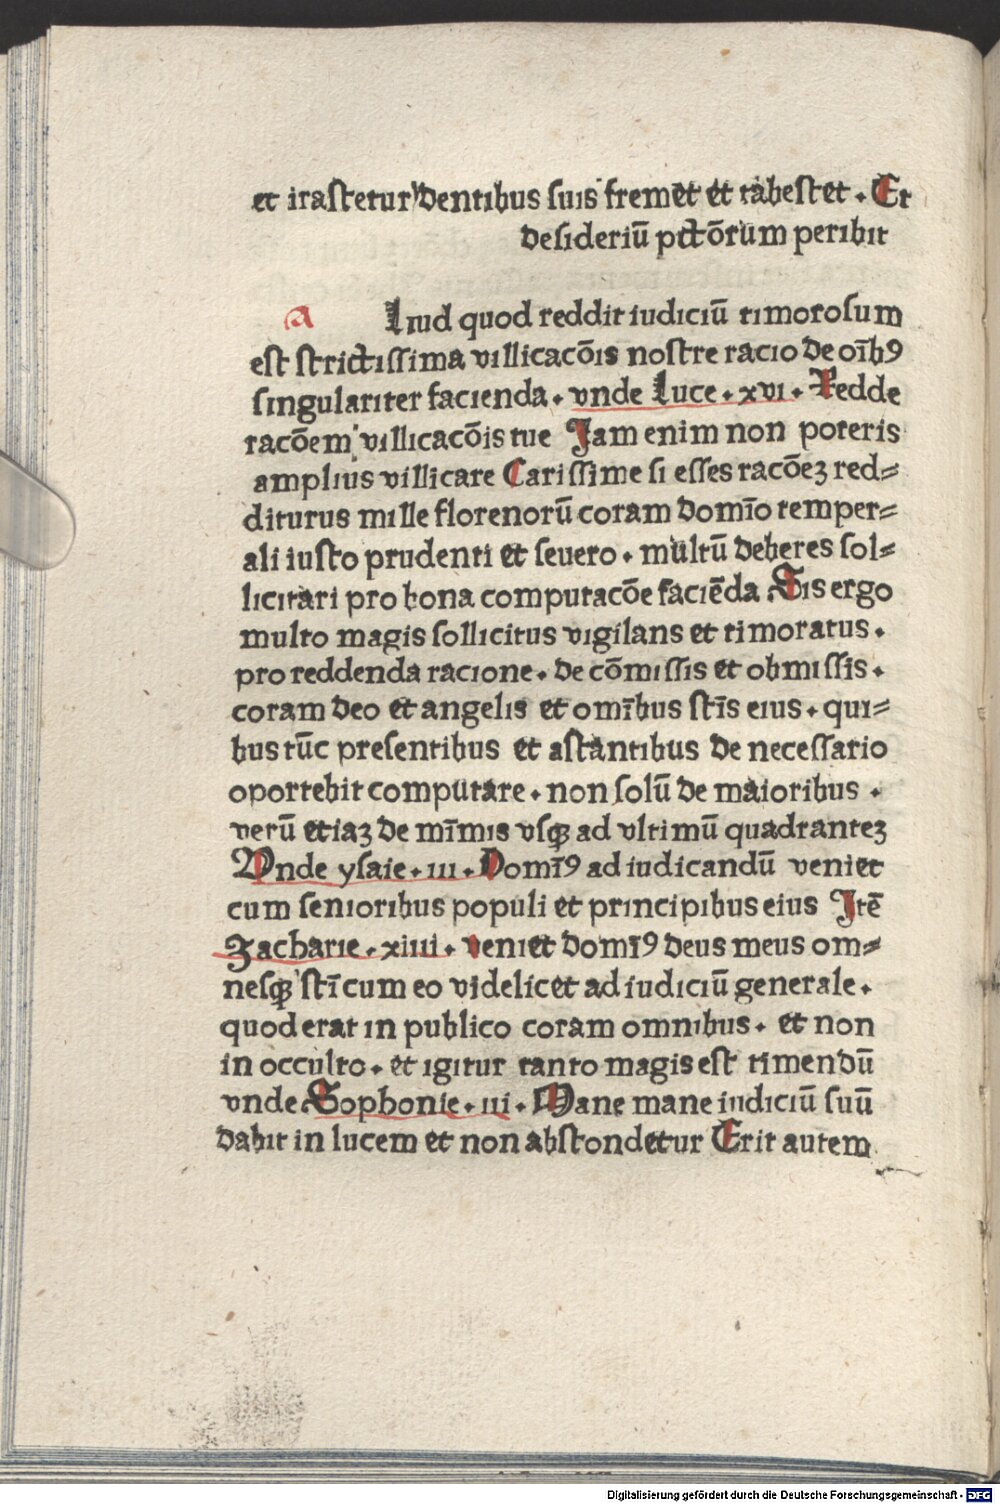 et irascetur dentibus suis fremet et tabescet . Et
desideriū pctōrum peribit
a Liud quod reddit iudiciū timorosum
est strictissima villicacōis nostre racio de oīb9
singulariter facienda . vnde Luce . xvi . Redde
racōem villicacōis tue Jam enim non poteris
amplius villicare Carissime si esses racōeʒ red⸗
diturus mille florenorū coram domīo temper⸗
ali iusto prudenti et seuero . multū deberes sol⸗
licitari pro bona computacōe faciēda Sis ergo
multo magis sollicitus vigilans et timoratus .
pro reddenda racione . de cōmissis et obmissis .
coram deo et angelis et omībus sctīs eius . qui⸗
bus tūc presentibus et astantibus de necessario
oportebit computare . non solū de maioribus .
verū etiaʒ de mīmis vsqꝫ ad vltimū quadranteʒ
Vnde ysaie . iii . Domī9 ad iudicandū veniet
cum senioribus populi et principibus eius Jtē
Zacharie . xiiii . veniet domī9 deus meus om⸗
nesqꝫ sctī cum eo videlicet ad iudiciū generale .
quod erat in publico coram omnibus . et non
in occulto . et igitur tanto magis est timendū
vnde Sophonie . iii . Mane mane iudiciū suū
dabit in lucem et non abscondetur Erit autem
Digitalisierung gefördert durch die Deutsche Forschungsgemeinschaft - DFG